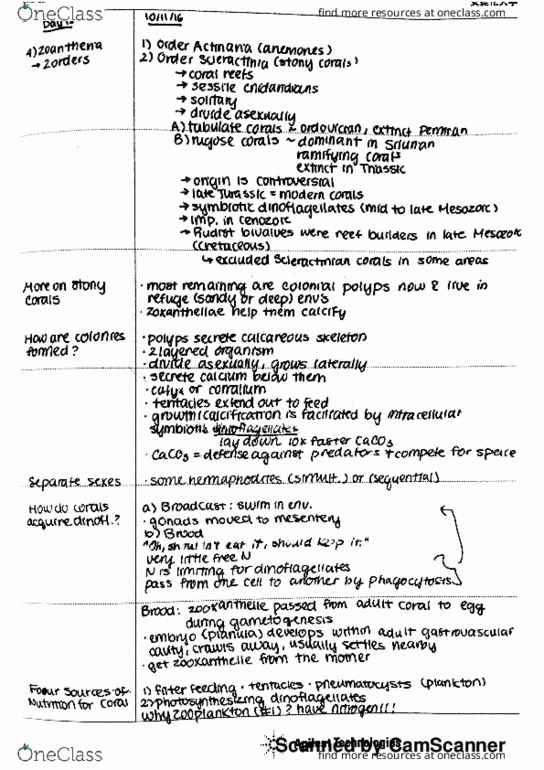 OneClass
find more resources at oneclass.com
10/11/16
4) zoanthema
→ 2 orders
1) Order Actinaria (anemones)
2) Order Scleractinia (stony corals)
→ coral reefs
→ sessile cnidarians
→ solitary
→ divide asexually
A) tabulate corals ~ ordovician, extinct Permian
B) rugose corals ~ dominant in Silurian
ramifying corals
extinct in Triassic
→ origin is controversial
→ late Jurassic = modern corals
→ symbiotic dinoflagellates (mid to late Mesozoic)
→ imp. in cenozoic
→ Rudist bivalves were reef builders in late Mesozoic
(cretaceous)
↳ excluded Scleractinian corals in some areas
More on stony
corals
· most remaining are colonial polyps now & live in
refuge (sandy or deep) envs
· zoxanthellae help them calcify
How are colonies
formed?
· polyps secrete calcareous skeleton
· 2 layered organism
· divide asexually, grows laterally
· secrete calcium below them
· calyx or corallum
· tentacles extend out to feed
· growth/calcification is facilitated by intracellular
symbiotic dinoflagellates
lay down 10x faster CaCO3
· CaCO3 = defense against predators + compete for space
Separate sexes
· some hermaphodites (simult.) or (sequential)
How do corals
acquire dinofl.?
a) Broadcast: swim in env.
· gonads moved to mesentery
b) Brood
"Oh, shouldn't eat it, should keep it."
very little free N
N is limiting for dinoflagellates
pass from one cell to another by phagocytosis
Brood: zooxanthelle passed from adult coral to egg
during gametogenesis
· embryo (planula) develops within adult gastrovascular
cavity, crawls away, usually settles nearby
· get zooxanthelle from the mother
Four Sources of
Nutrition for Coral
1) Filter feeding · tentacles · pneumatocysts (plankton)
2) photosynthesizing dinoflagellates
why zooplankton (#1)? have nitrogen!!!
OneClass
Scanned by CamScanner
Agilent Technologies
find more resources at oneclass.com